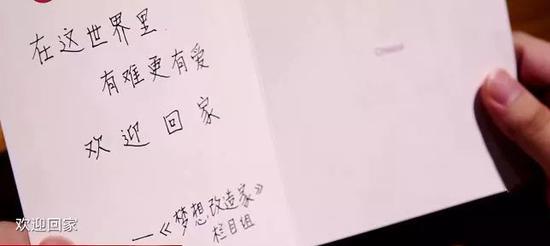 在这世界里
有难更有爱
欢迎回家
—《梦想改造家》
栏目组
欢迎回家